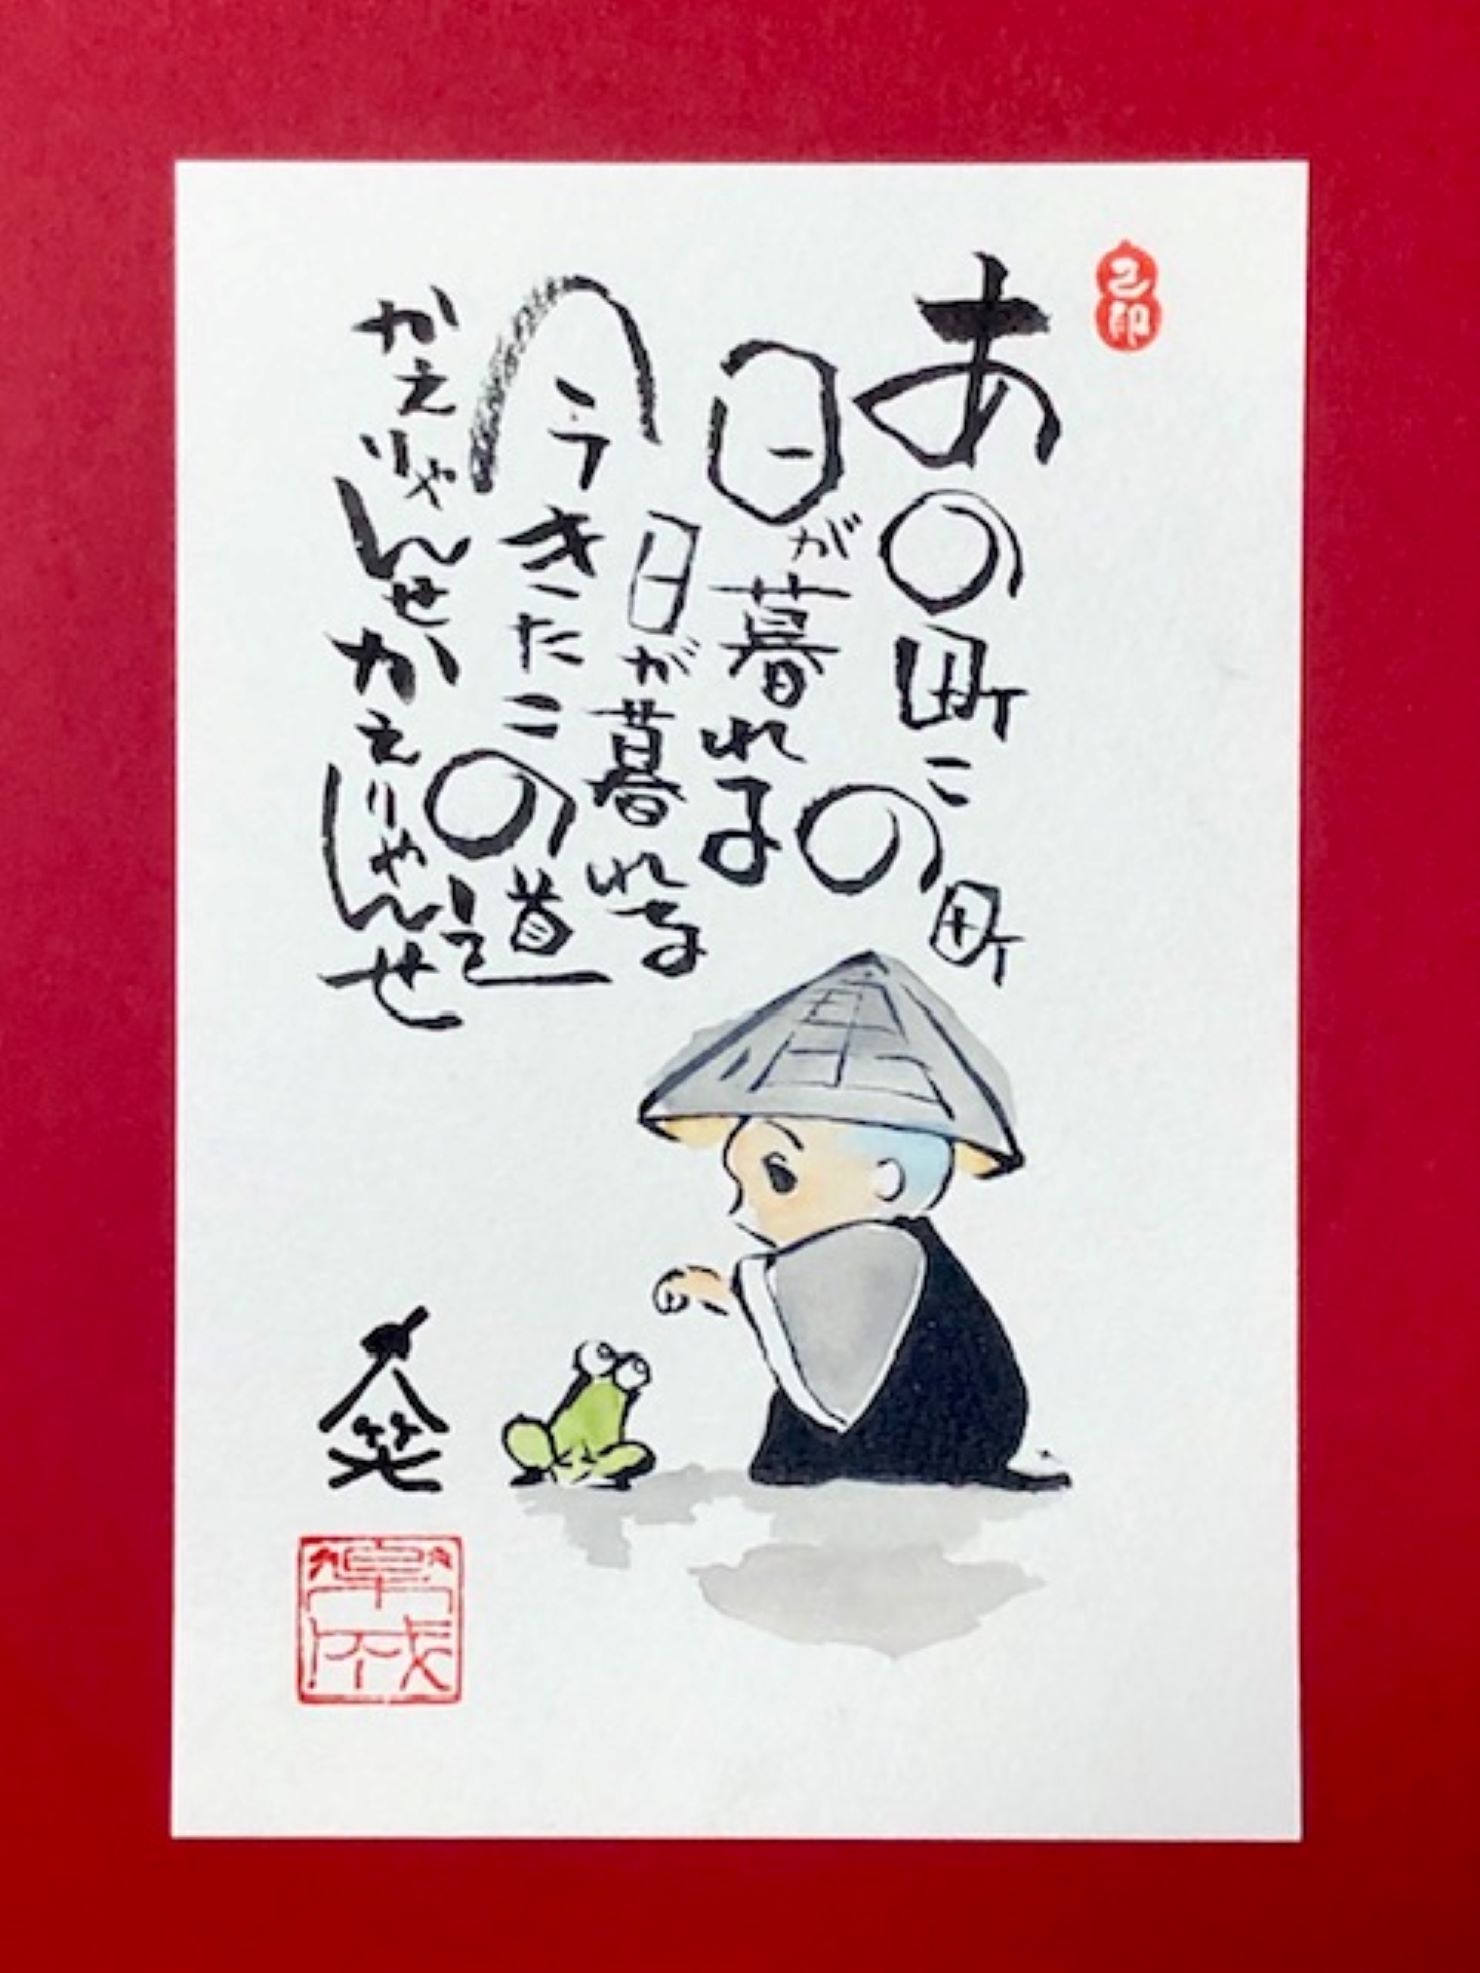 あの町この町
日が暮れる
日が暮れる
今きたこの道
かえりゃんせかえりゃんせ